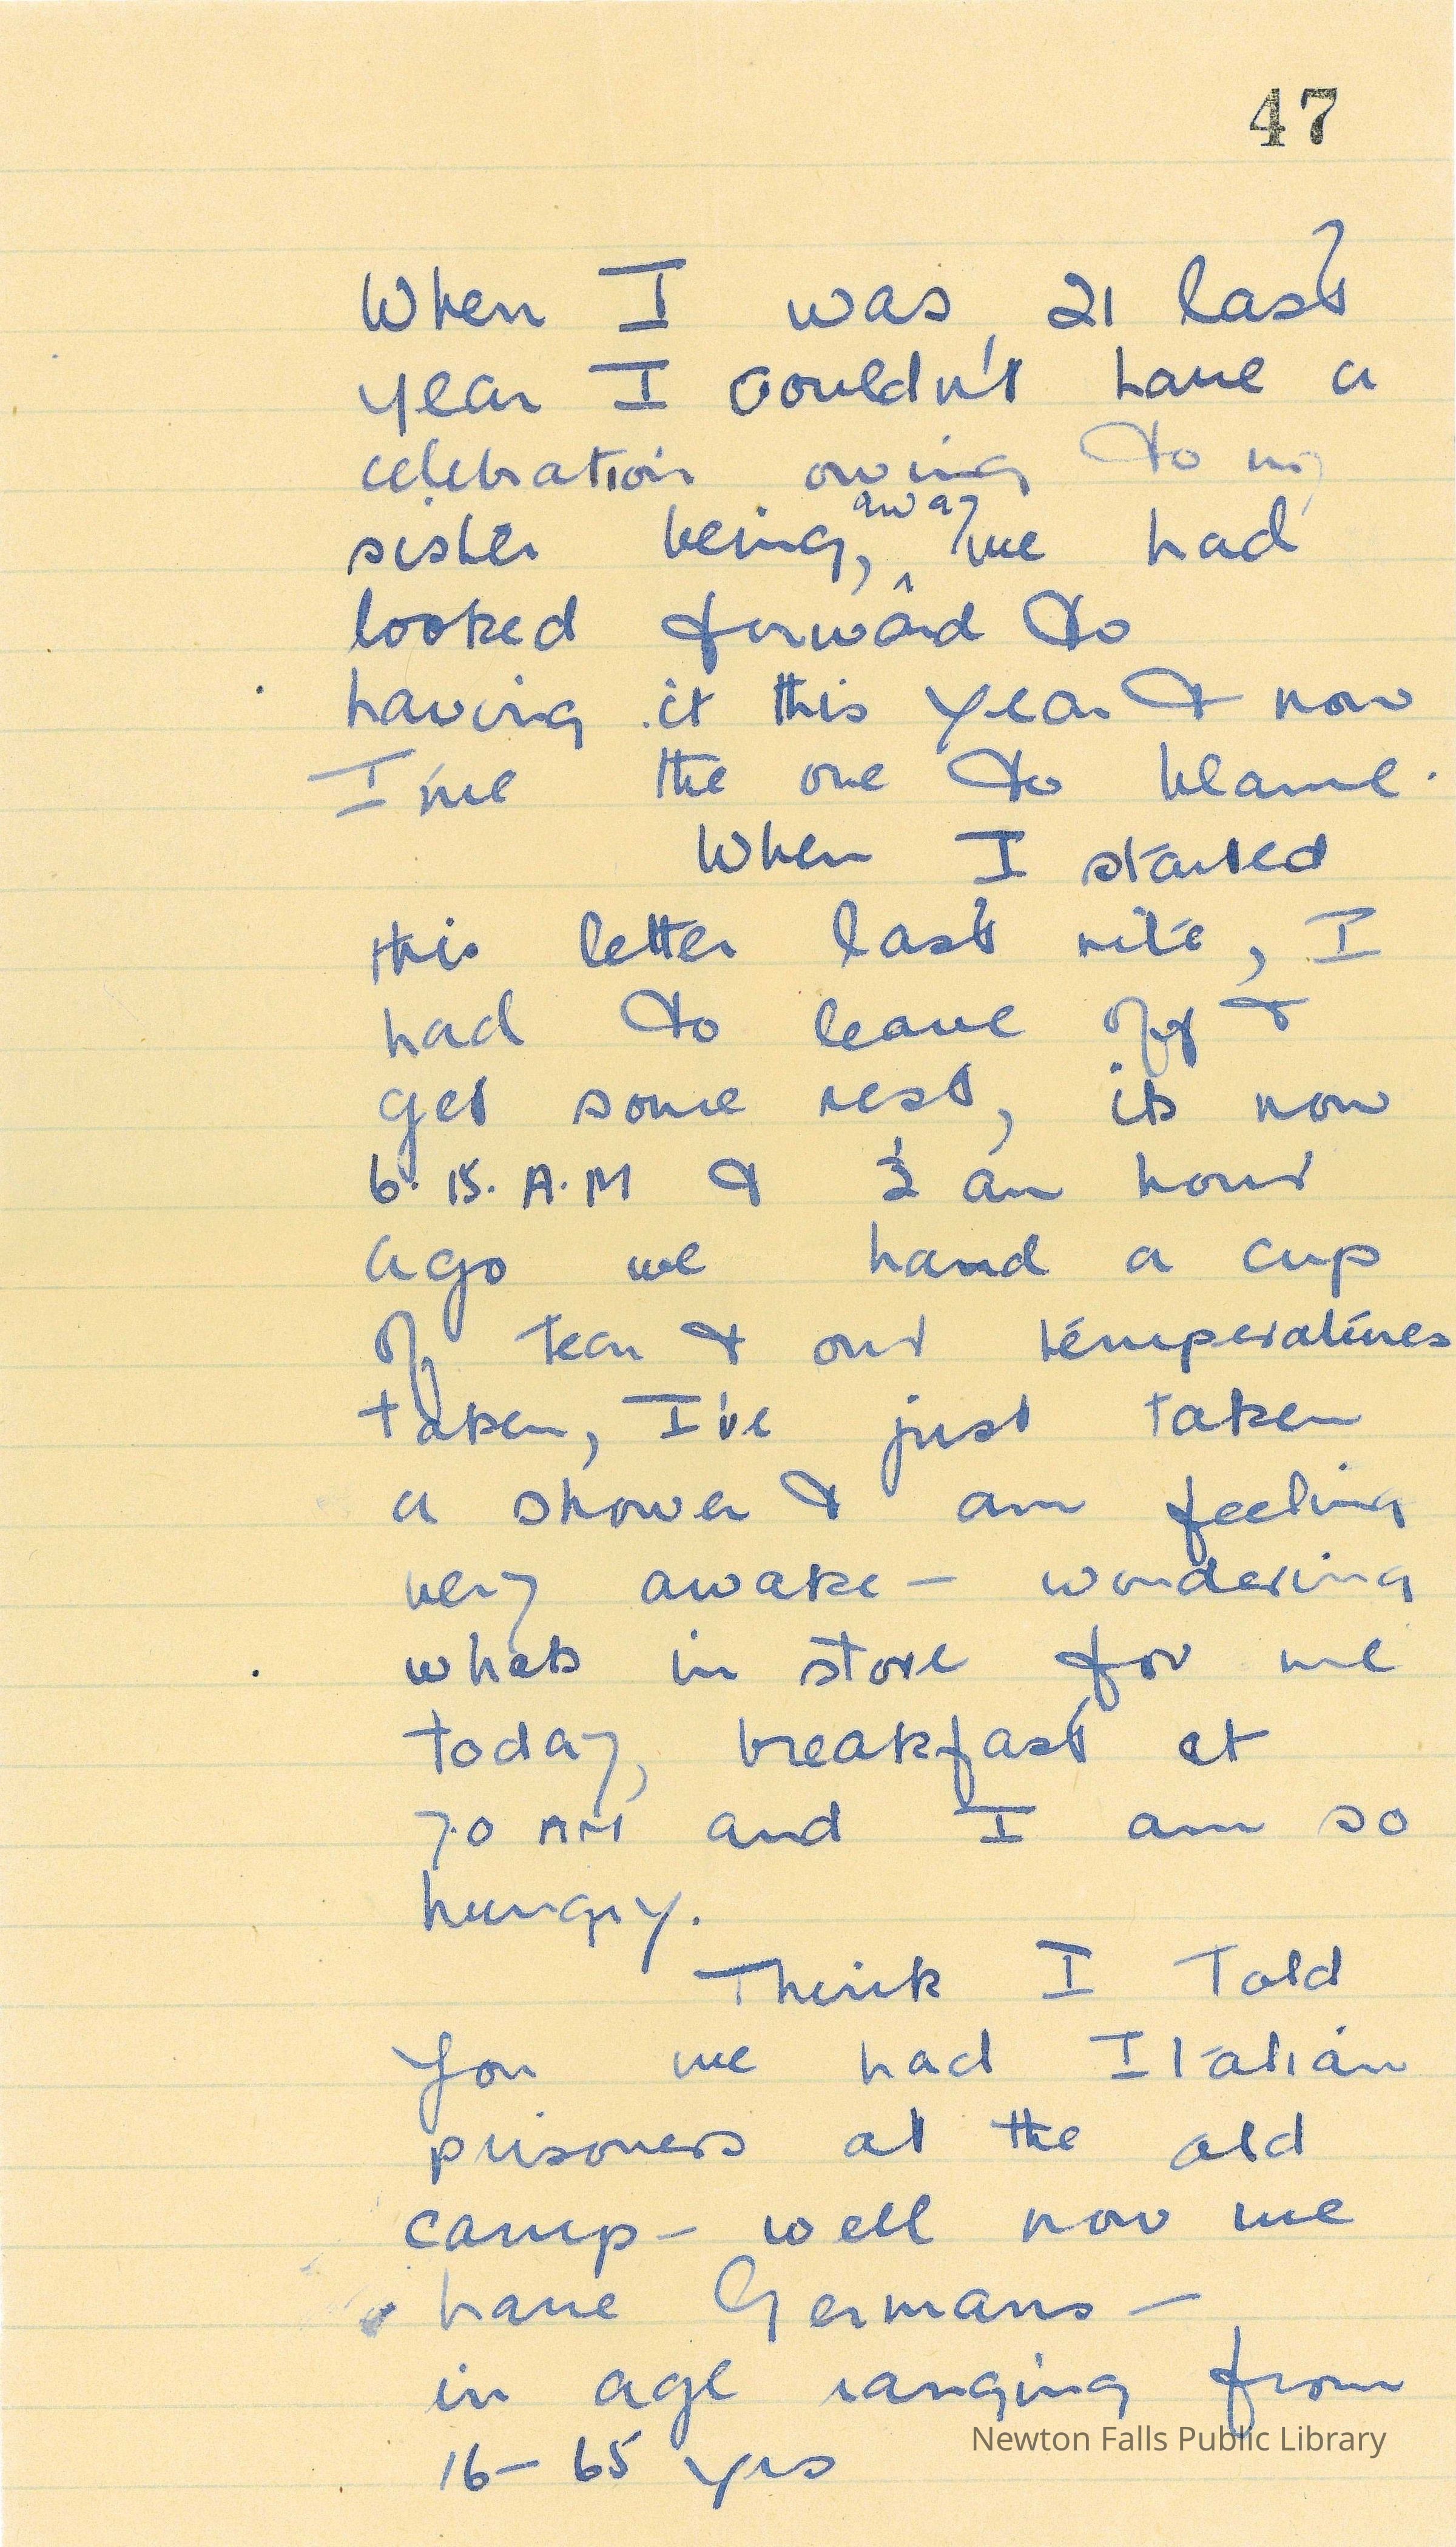 47
When I was 21 last
year I couldn't have a
celebration owing to my
sister being, away we had
looked forward to
having it this year & now
I'me the one to blame.
When I started
this letter last nite, I
had to leave off &
get some rest, its now
6.15. A.M & ½ an hour
ago we hand a cup
of tea & our temperatures
taken, I've just taken
a shower & am feeling
very awake - wondering
whats in store for me
today, breakfast at
7.0 AM and I am so
hungry.
Think I Told
you we had Italian
prisoners at the old
camp - well now we
have Germans -
in age ranging from
16 - 65 yrs
Newton Falls Public Library